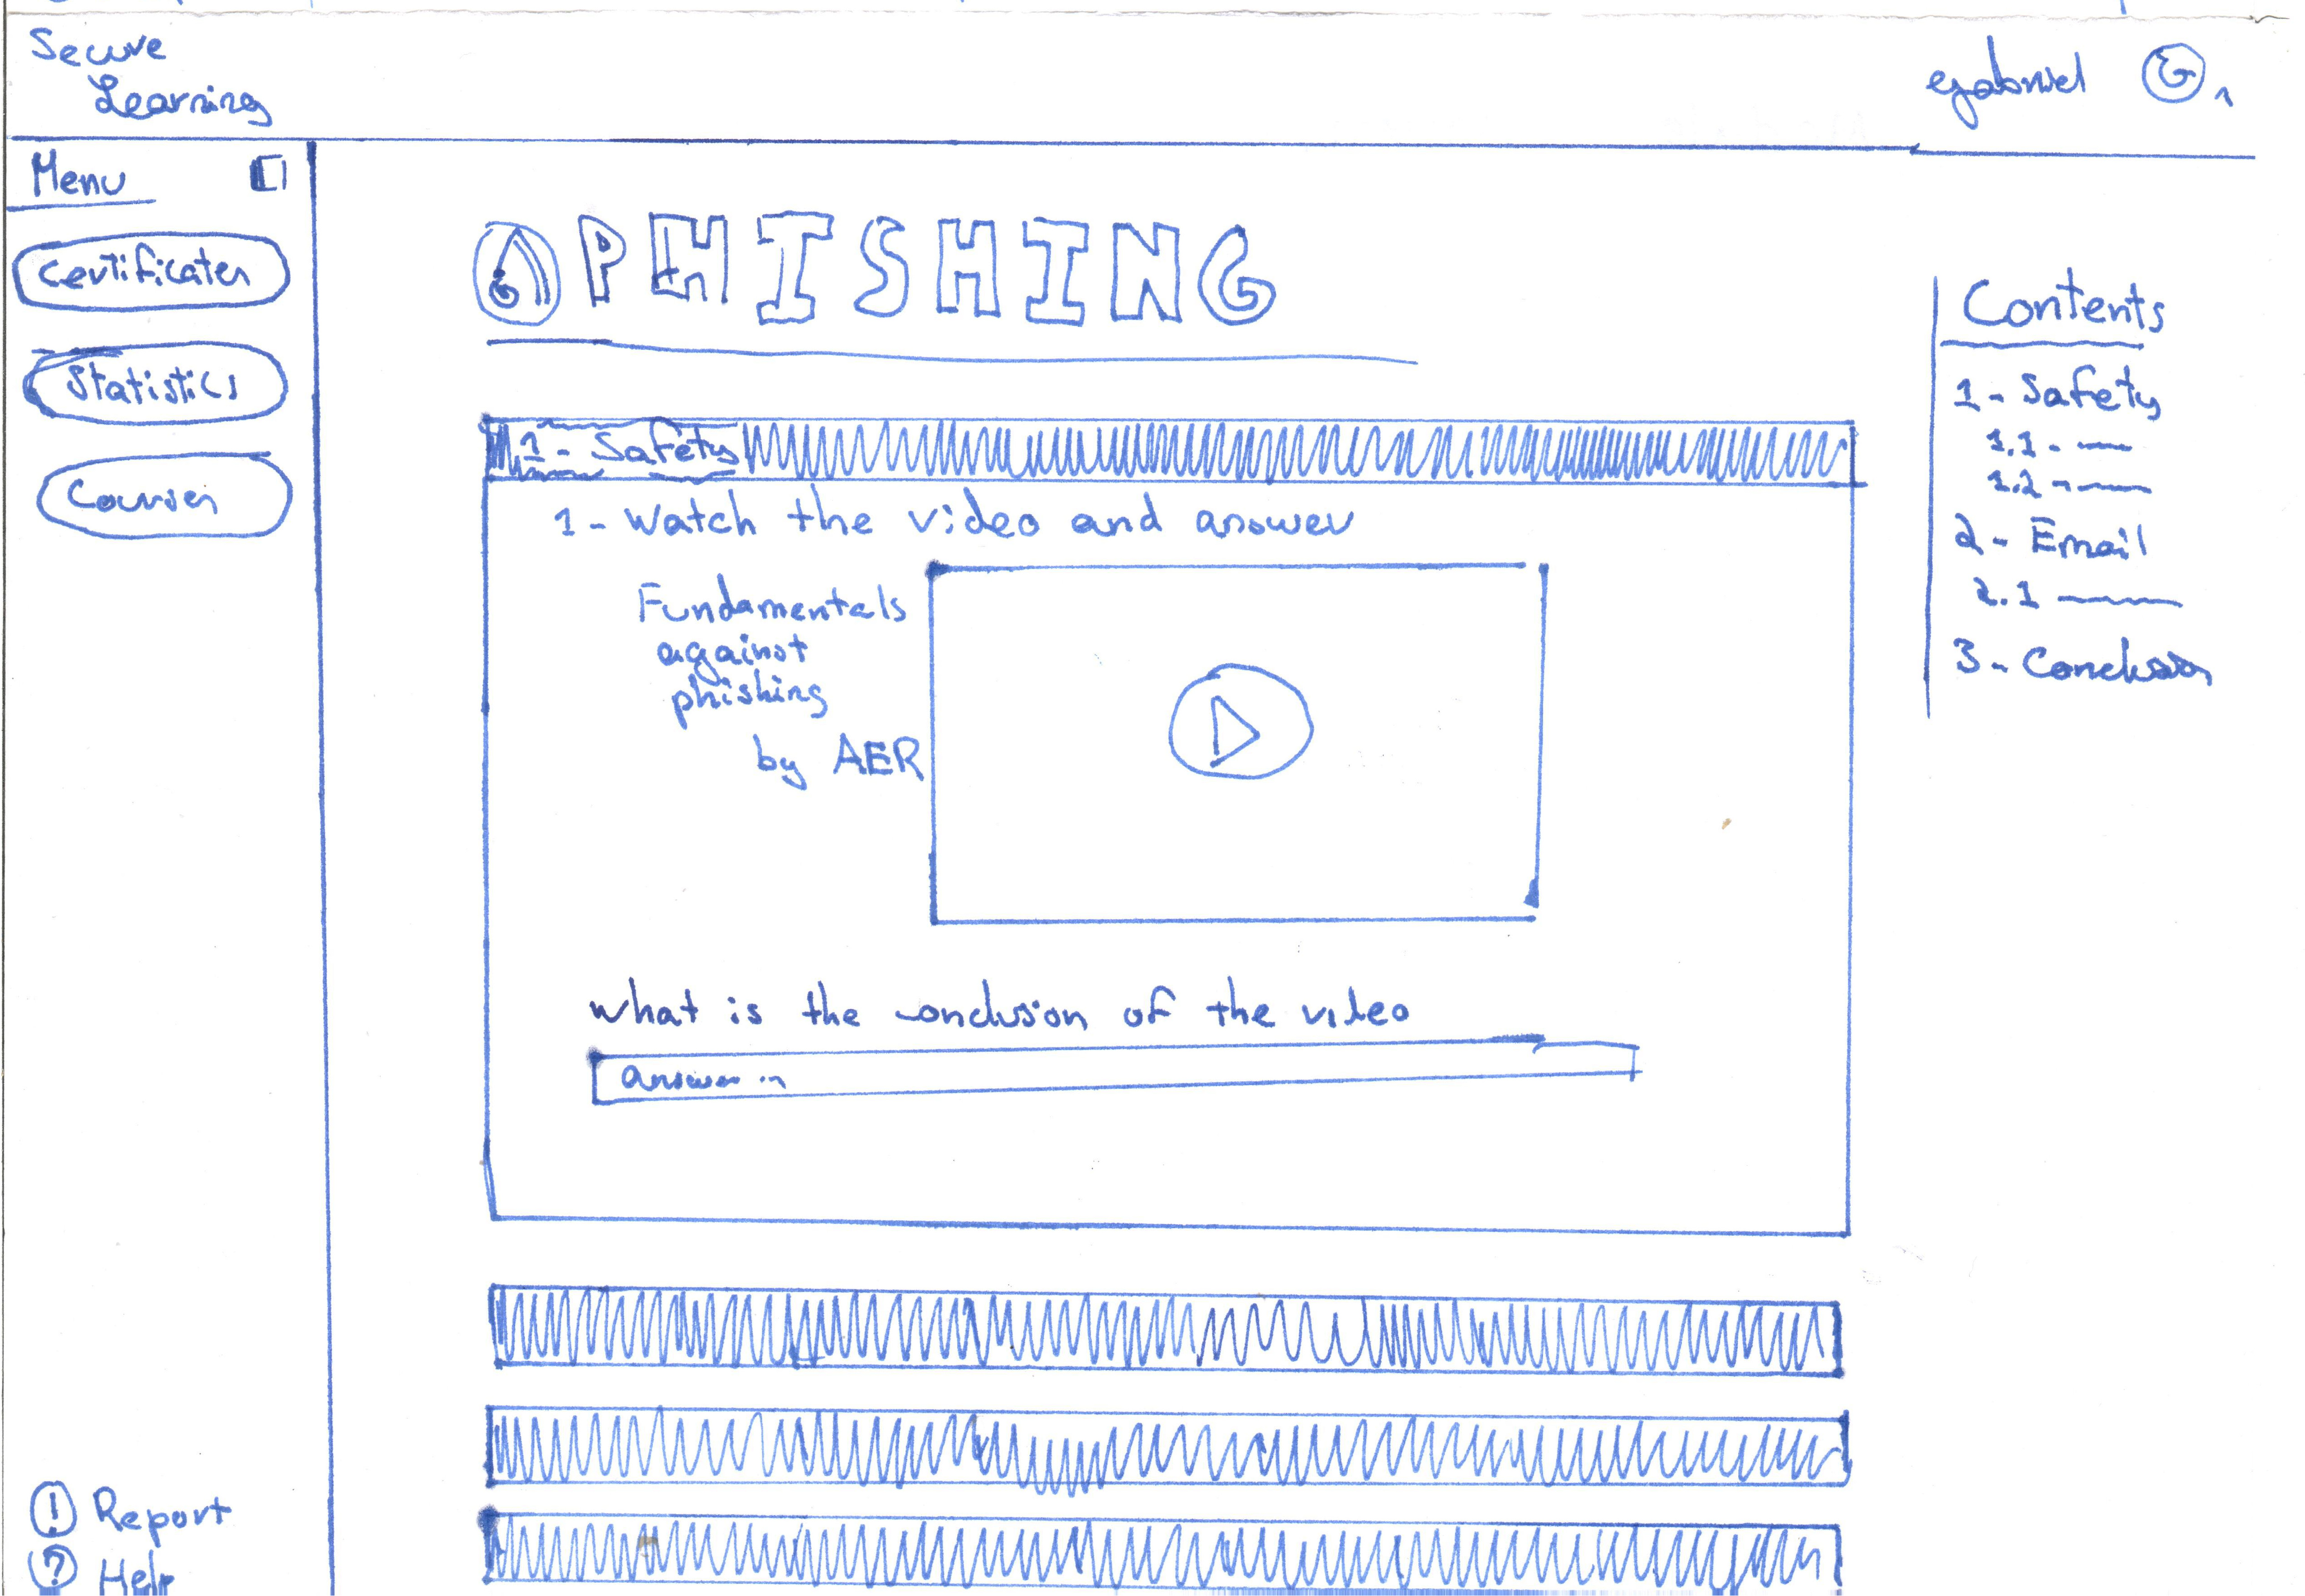 Secure
Learning
gabriel G
Menu
Certificates
Statistics
Courses
PHISHING
1 - Safety
1 - Watch the video and answer
Fundamentals
against
phishing
by AER
what is the conclusion of the video
answer ...
Contents
1 - Safety
1.1 -
1.2 -
2 - Email
2.1
3 - Conclusion
! Report
? Help